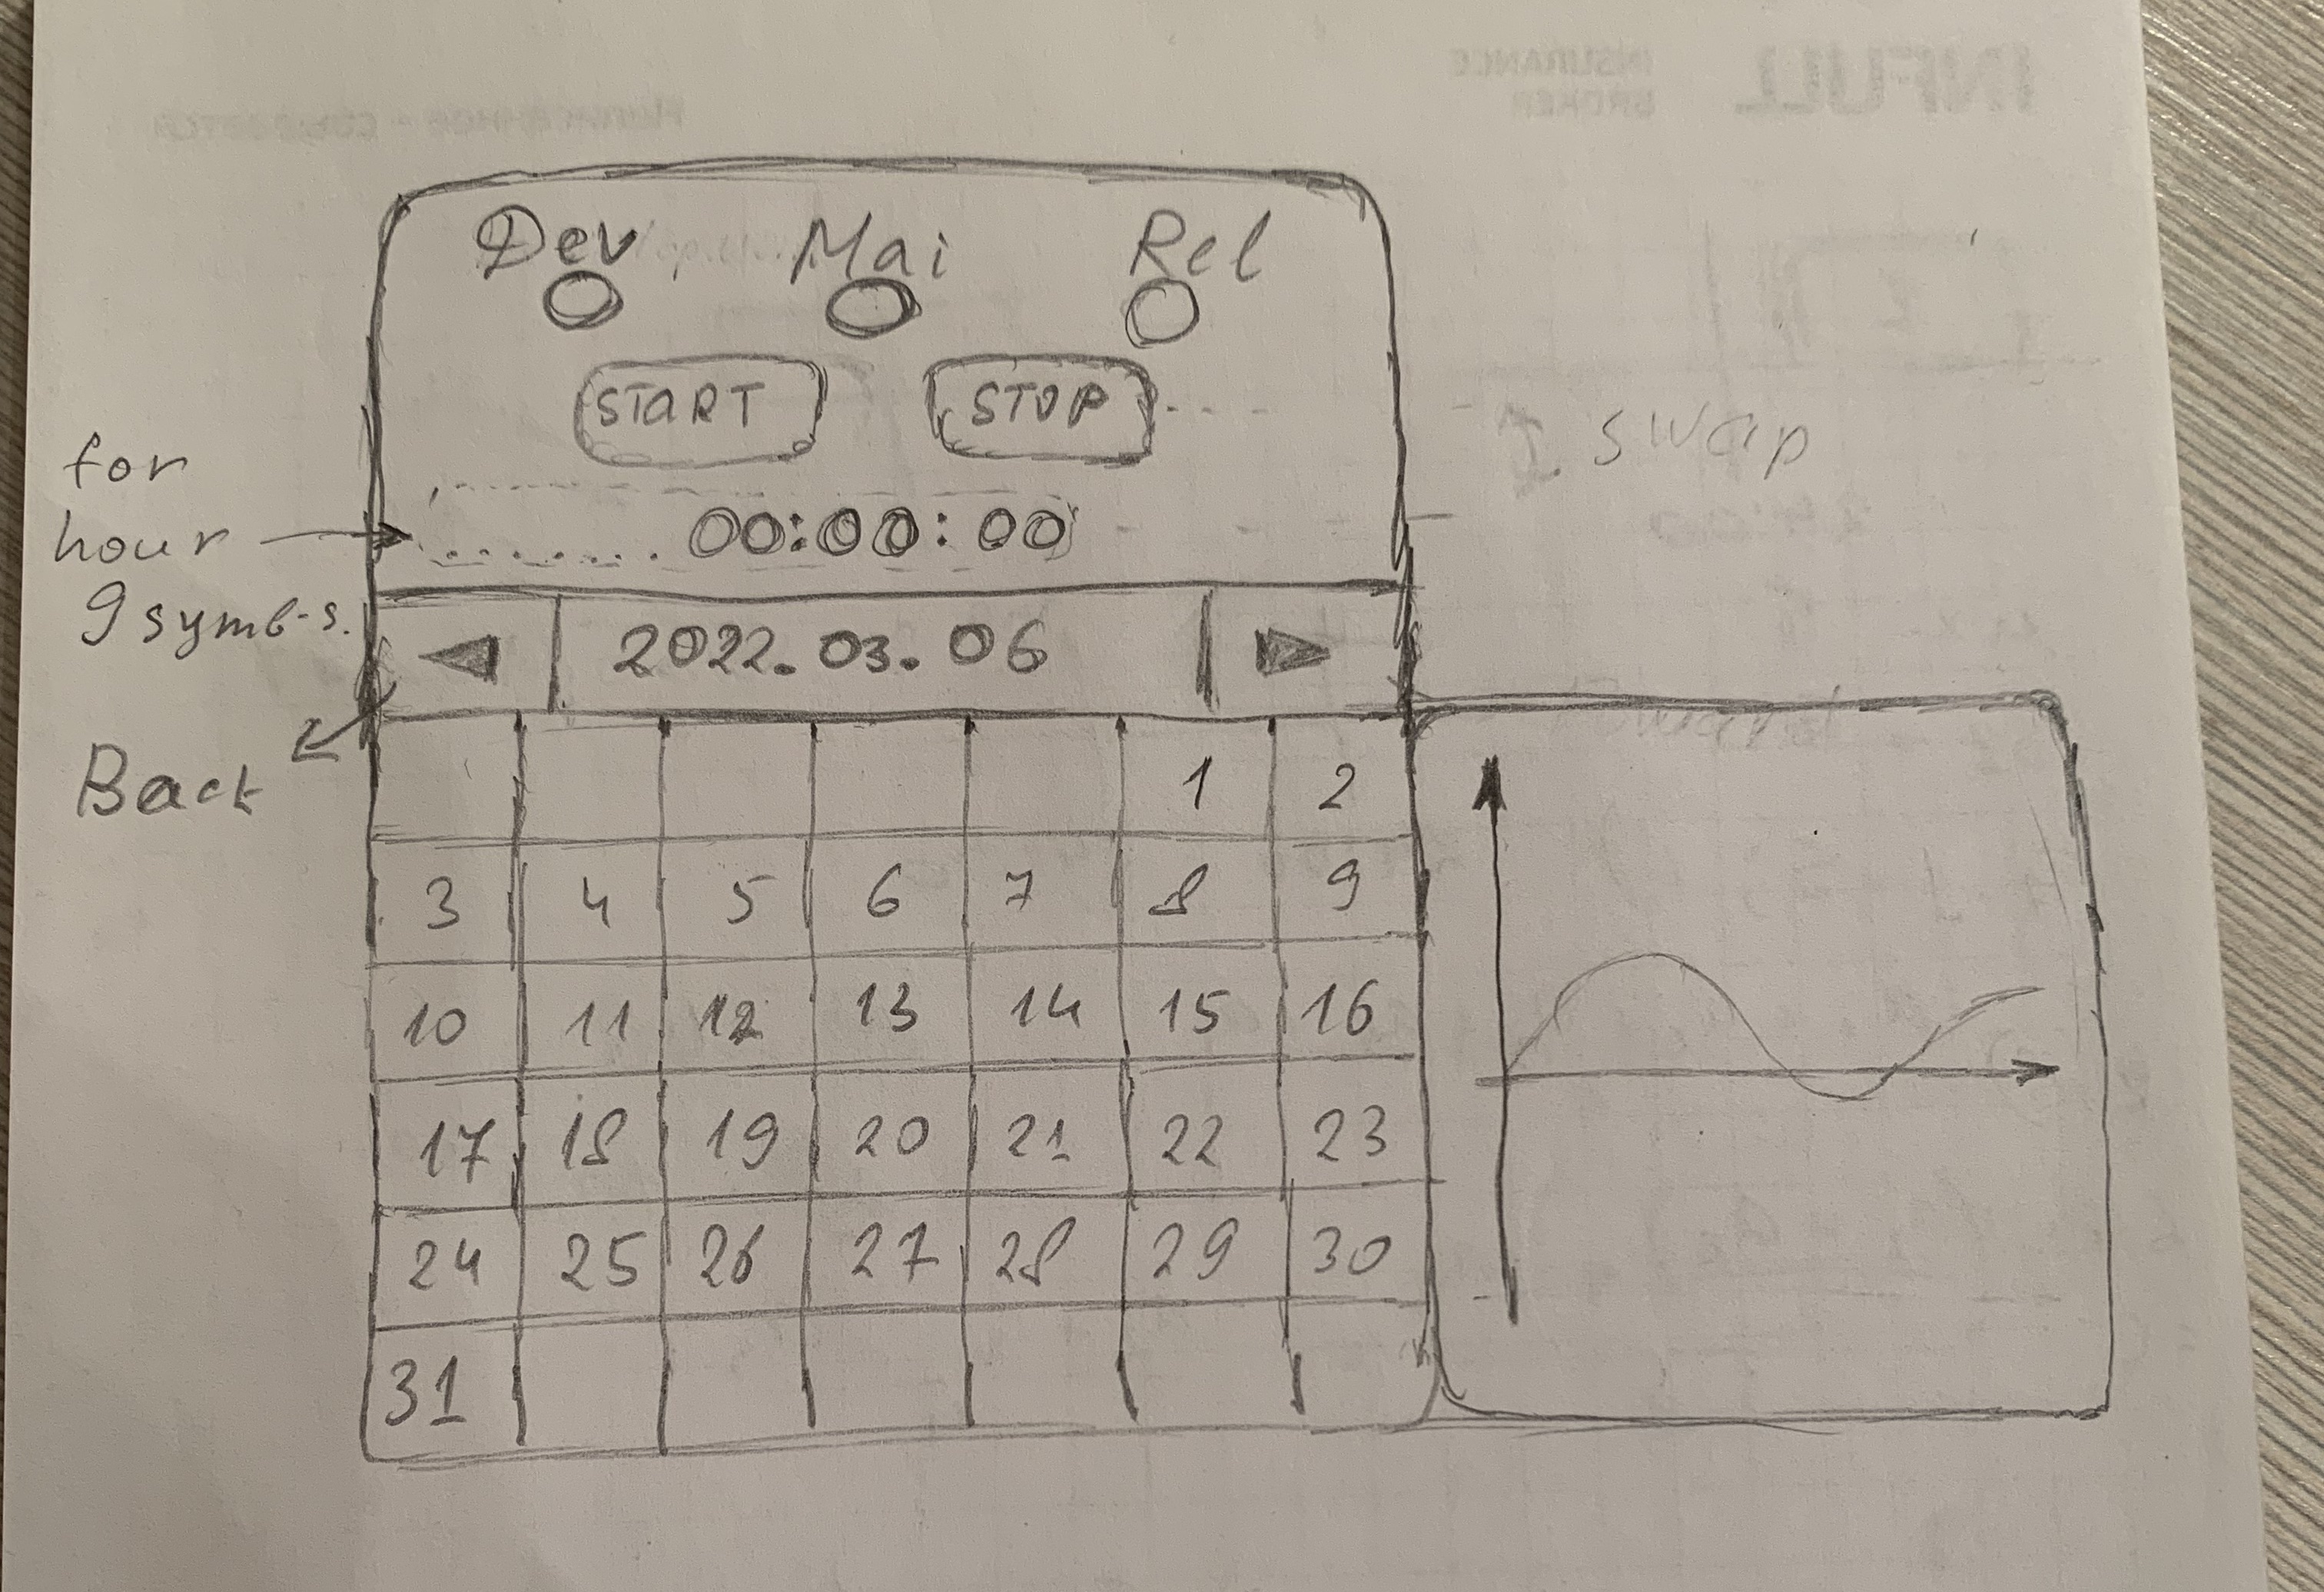 Dev Mai Rel
START STOP
swap
for
hour
9 symb-s.
00:00:00
2022.03.06
Back
1 2
3 4 5 6 7 8 9
10 11 12 13 14 15 16
17 18 19 20 21 22 23
24 25 26 27 28 29 30
31
INFULL
INSURANCE
BROKER